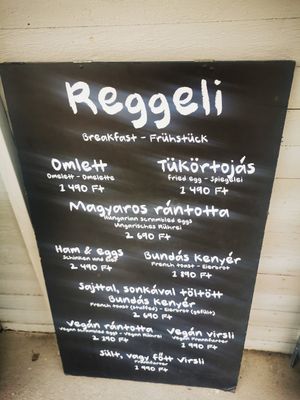 Reggeli
Breakfast - Frühstück
Omlett
Omelett - Omelette
1 490 Ft
Tükörtojás
Fried Egg - Spiegelei
1 490 Ft
Magyaros rántotta
Hungarian scrambled eggs
Ungarisches Rührei
2 690 Ft
Ham & eggs
Schinken und Ei
2 490 Ft
Bundás kenyér
French toast - Eierbrot
1 890 Ft
Sajttal, sonkával töltött
Bundás kenyér
French toast (stuffed) - Eierbrot (gefüllt)
2 690 Ft
Vegán rántotta
Vegan scrambled eggs - Vegan Rührei
2 290 Ft
Vegán virsli
Vegan Frankfurter
1 990 Ft
Sült, vagy főtt virsli
Frankfurter
1 990 Ft